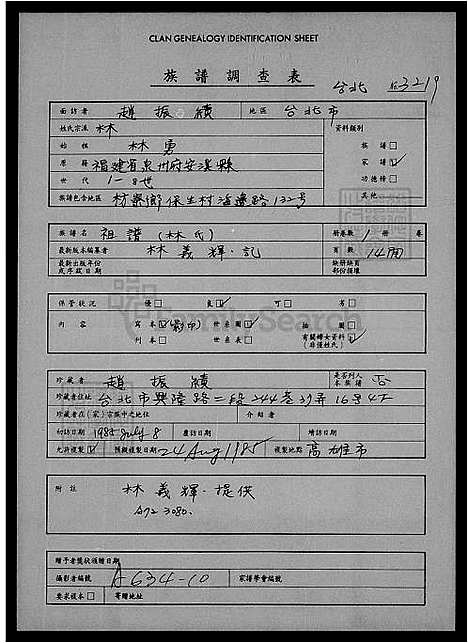 CLAN GENEALOGY IDENTIFICATION SHEET
族譜調查表
台北 3219
面訪者 趙振績 地區 台北市
姓氏宗派 林 資料類別
始祖 林勇 族譜□
原籍 福建省泉州府安溪縣 家譜☑
世代 1-8世 功德榜□
族譜包含地區 枋寮鄉保生村海邊路132号 其他
族譜名 祖譜(林氏) 冊卷數 1 冊 卷
最新版本編纂者 林義輝·記 頁數 14
最新出版年份或序跋日期 缺冊缺頁部份損壞
保管狀況 優□ 良☑ 可□ 劣□
內容 寫本☑ 影印 世系圖☑ 插圖□
刊本□ 世系表□ 有關婦女資料☑(非僅姓氏)
珍藏者 趙振績 是否列入本族譜 否
珍藏者住址 台北市興隆路二段244巷39弄16号4F
珍藏者在(家)宗族中之地位 介紹者
初訪日期 1985 July 8 應訪日期 靖訪日期
允許複製☑ 預擬複製日期 24 Aug 1985 複製地點 高雄市
附註 林義輝·提供
A72-3080.
贈予者獎狀頒贈日期
攝影者編號 A634-10 家譜學會編號
要求複本□ 寄贈地址
FamilySearch